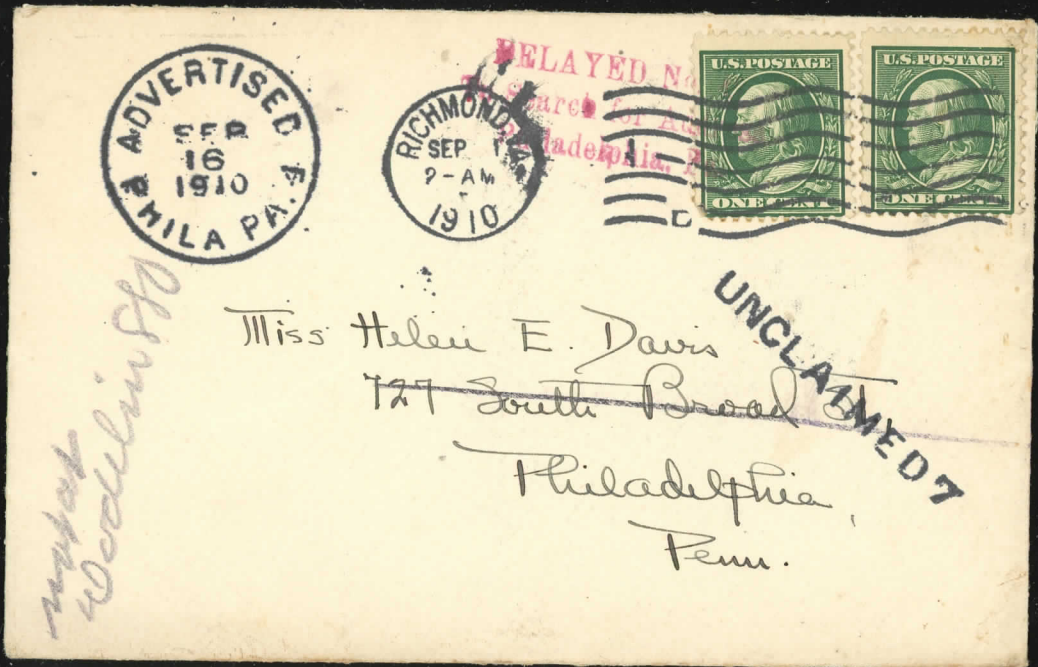 ADVERTISED
SEP
16
1910
PHILA PA.
RICHMOND, VA.
SEP
9-AM
1910
DELAYED No
Search for
Philadelphia,
U.S. POSTAGE
ONE CENT
U.S. POSTAGE
ONE CENT
D
UNCLAIMED 7
Miss Helen E. Davis
727 South Broad St.
Philadelphia,
Penn.
not at